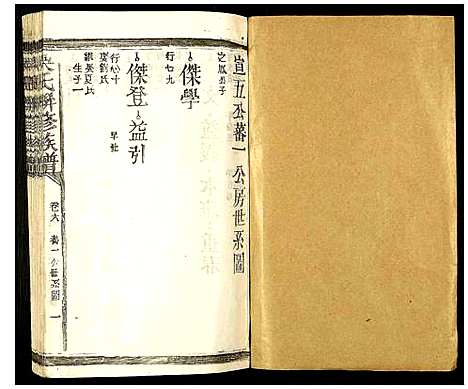 宣五公蕃一公房世系圖
之鳳長子
傑學
行七九
傑登
益引
行七十
早世
娶劉氏
繼娶夏氏
生子一
氏聯修族譜
卷六
蕃一公世系圖
一